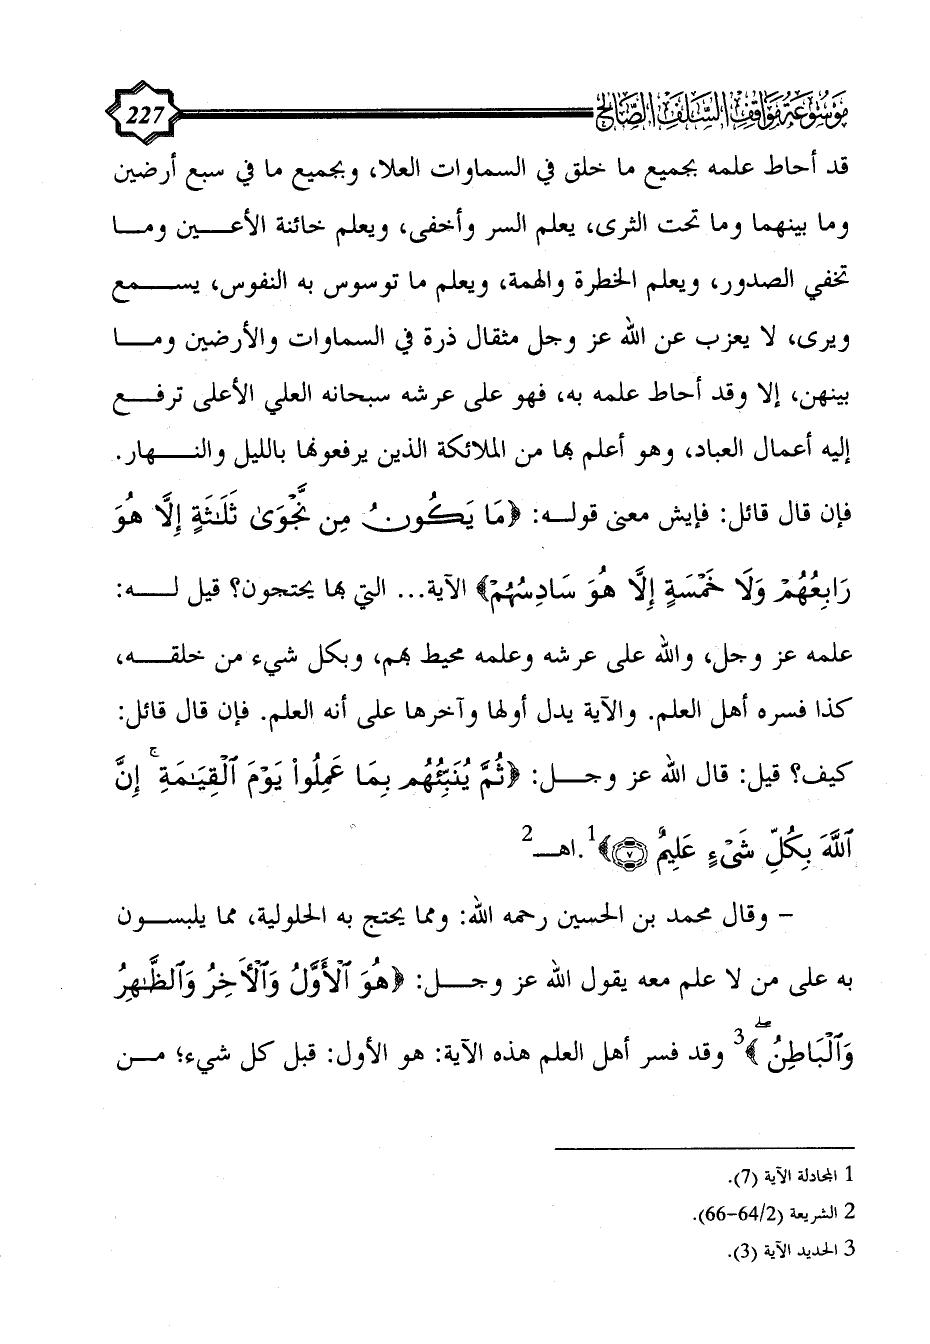 موسوعة مواقف السلف الصالح
227
قد أحاط علمه بجميع ما خلق في السماوات العلا، وبجميع ما في سبع أرضين
وما بينهما وما تحت الثرى، يعلم السر وأخفى، ويعلم خائنة الأعـــين ومـــا
تخفي الصدور، ويعلم الخطرة والهمة، ويعلم ما توسوس به النفوس، يســـمع
ويرى، لا يعزب عن الله عز وجل مثقال ذرة في السماوات والأرضين ومـــا
بينهن، إلا وقد أحاط علمه به، فهو على عرشه سبحانه العلي الأعلى ترفـــع
إليه أعمال العباد، وهو أعلم بها من الملائكة الذين يرفعونها بالليل والنـــهار.
فإن قال قائل: فإيش معنى قولـــه: ﴿مَا يَكُونُ مِن نَّجْوَىٰ ثَلَـٰثَةٍ إِلَّا هُوَ
رَابِعُهُمْ وَلَا خَمْسَةٍ إِلَّا هُوَ سَادِسُهُمْ﴾ الآية... التي بها يحتجون؟ قيل لـــه:
علمه عز وجل، والله على عرشه وعلمه محيط بهم، وبكل شيء من خلقـــه،
كذا فسره أهل العلم. والآية يدل أولها وآخرها على أنه العلم. فإن قال قائل:
كيف؟ قيل: قال الله عز وجـــل: ﴿ثُمَّ يُنَبِّئُهُم بِمَا عَمِلُوا۟ يَوْمَ ٱلْقِيَـٰمَةِ ۚ إِنَّ
ٱللَّهَ بِكُلِّ شَىْءٍ عَلِيمٌ ٧﴾1.اهـــ2
– وقال محمد بن الحسين رحمه الله: ومما يحتج به الحلولية، مما يلبســـون
به على من لا علم معه يقول الله عز وجـــل: ﴿هُوَ ٱلْأَوَّلُ وَٱلْـَٔاخِرُ وَٱلظَّـٰهِرُ
وَٱلْبَاطِنُ ۖ﴾3 وقد فسر أهل العلم هذه الآية: هو الأول: قبل كل شيء؛ مـــن
1 المجادلة الآية (7).
2 الشريعة (2/64-66).
3 الحديد الآية (3).